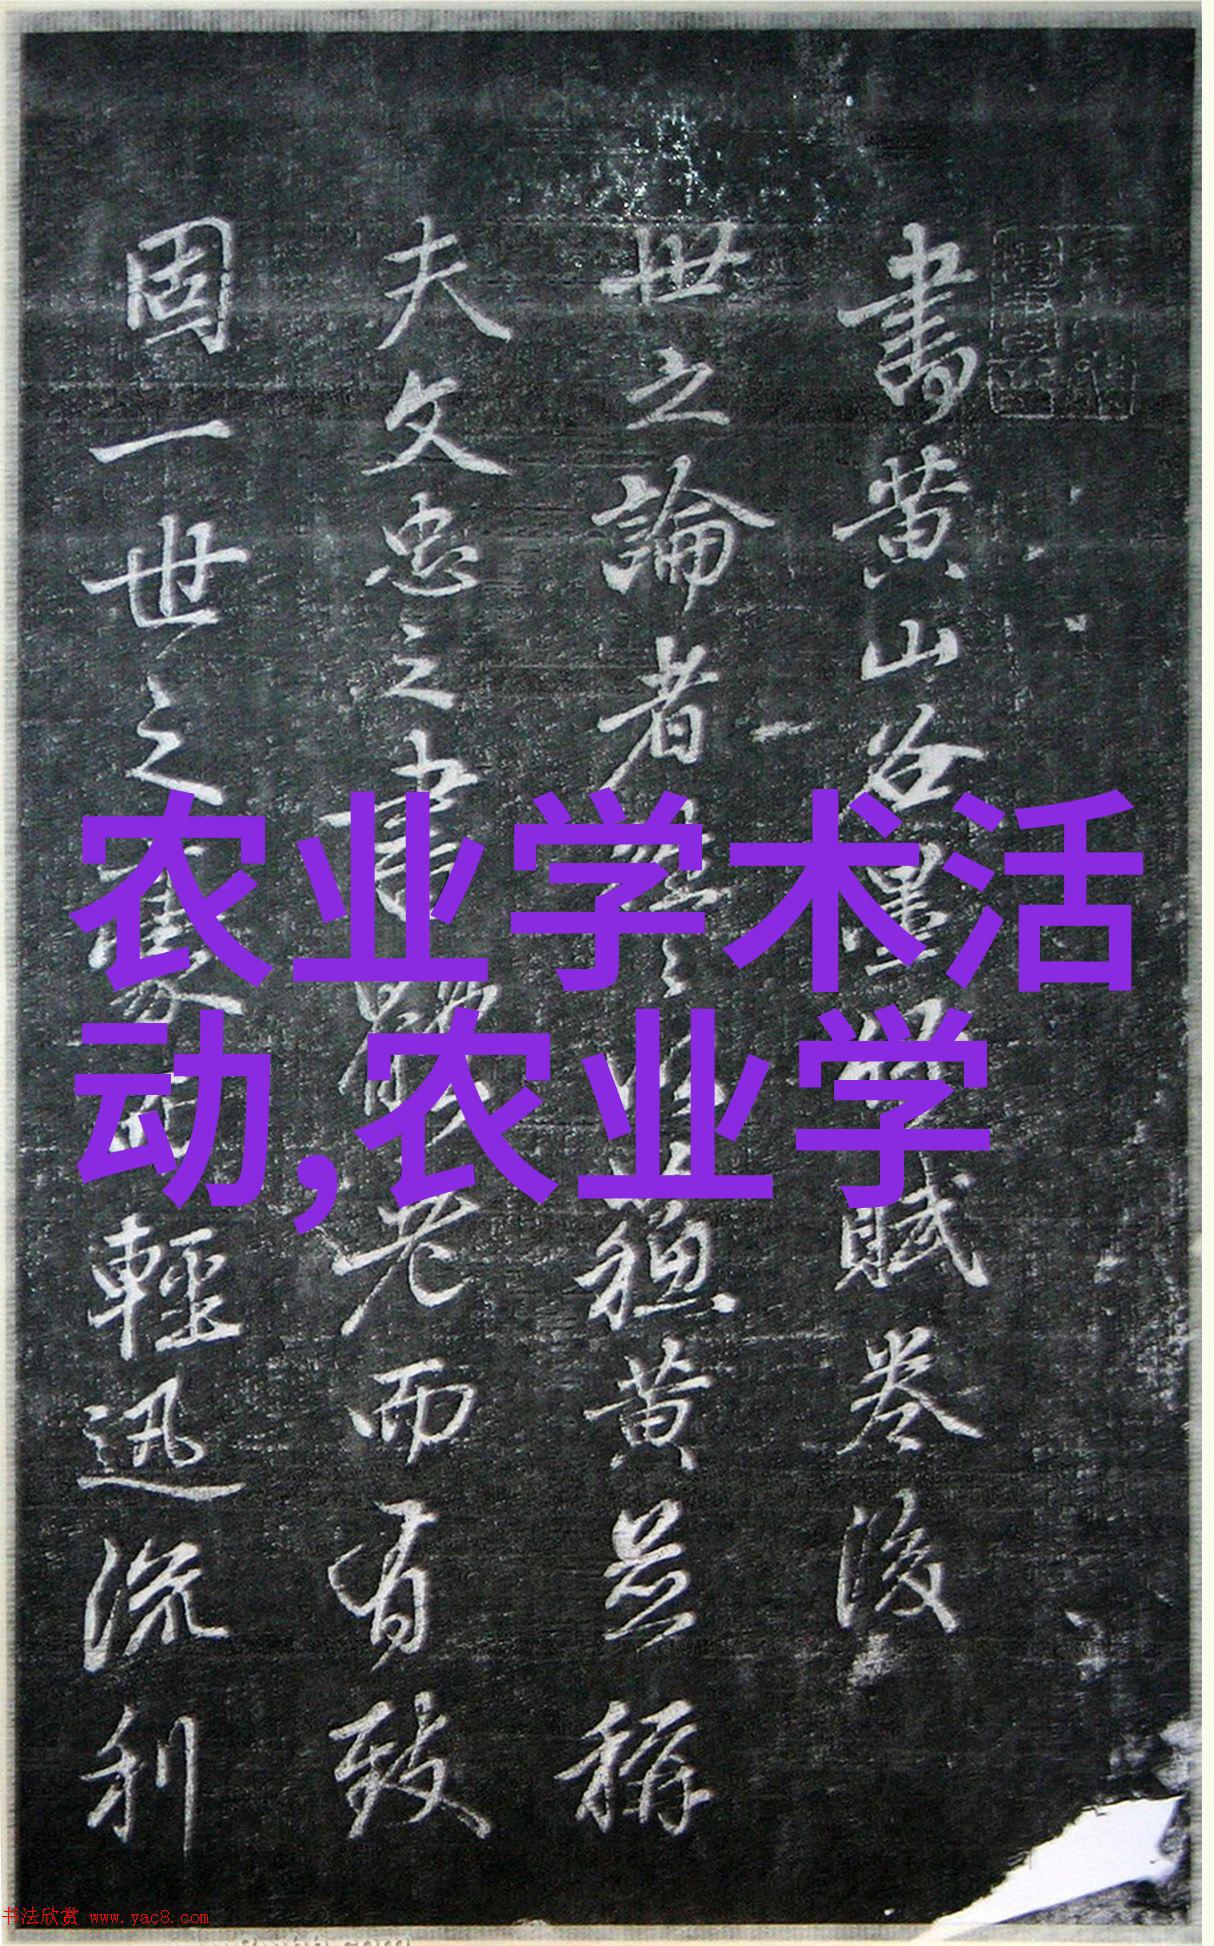 書黄山谷墨賦卷後
世之論者黄並稱
夫文忠之書老而有致
固一世之輕迅流利
农业学术活
动,农业学
书法欣赏 www.yac8.com